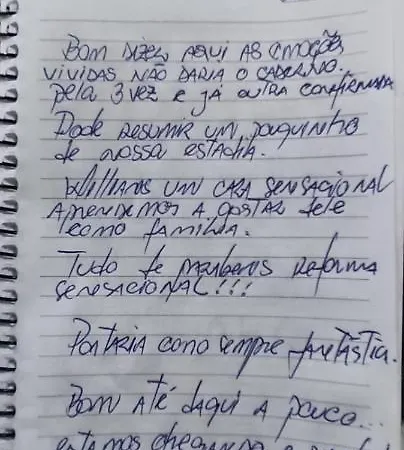 Bom dizer aqui as emoções
vividas não daria o caderno.
Pela 3 vez e já outra confirmada
Pode resumir um pouquinho
de nossa estadia.
Willians um cara sensacional
Aprendemos a gostar dele
como família.
Tudo de parabens reforma
sensacional!!!
Portaria como sempre fantástica.
Bom até daqui a pouco...
estamos chegando